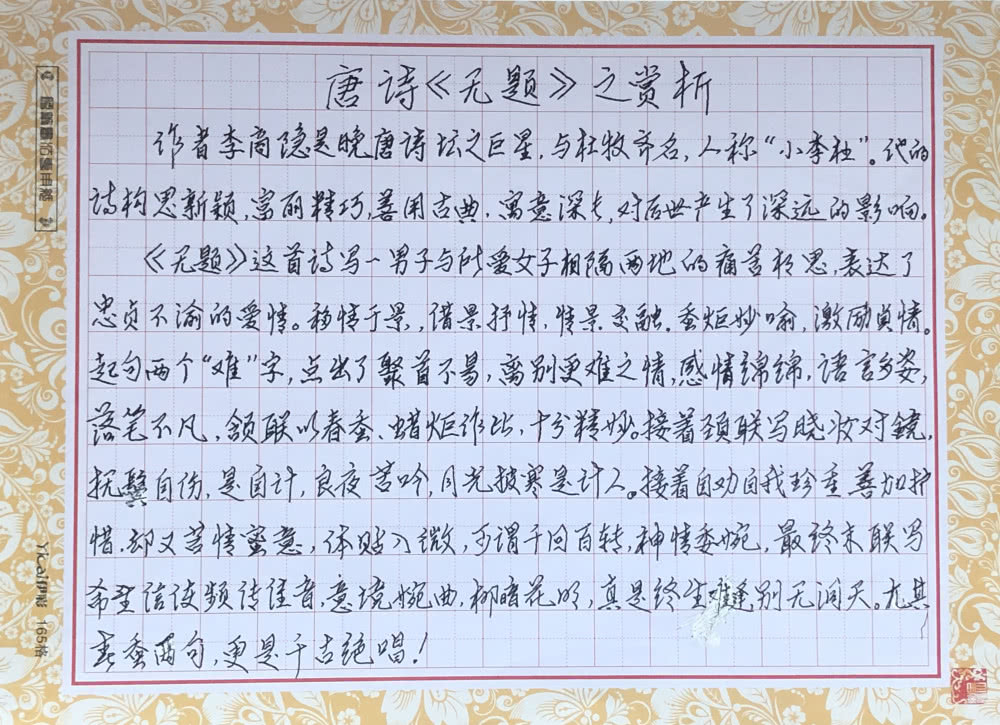 唐诗《无题》之赏析
作者李商隐是晚唐诗坛之巨星,与杜牧齐名,人称“小李杜”。他的
诗构思新颖,富丽精巧,善用古典,寓意深长,对后世产生了深远的影响。
《无题》这首诗写一男子与所爱女子相隔两地的痛苦相思,表达了
忠贞不渝的爱情。移情于景,借景抒情,情景交融。蚕炬妙喻,激励贞情。
起句两个“难”字,点出了聚首不易,离别更难之情,感情绵绵,语言多姿,
落笔不凡,颔联以春蚕、蜡炬作比,十分精妙。接着颈联写晓妆对镜,
抚鬓自伤,是自计,良夜苦吟,月光披寒是计人。接着自劝自我珍重善加护
惜,却又苦情蜜意,体贴入微,可谓千回百转,神情委婉,最终末联写
希望信使频传佳音,意境婉曲,柳暗花明,真是终生难逢别无洞天。尤其
春蚕两句,更是千古绝唱!
165格